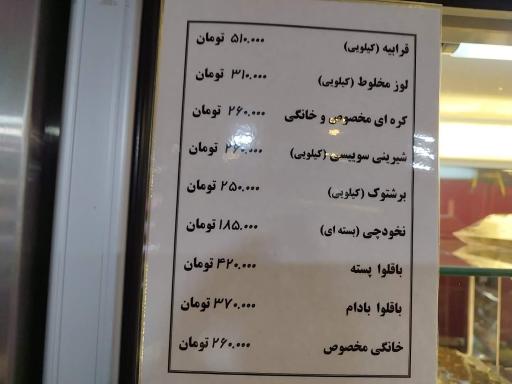 قرابیه (کیلویی) ۵۱۰.۰۰۰ تومان
لوز مخلوط (کیلویی) ۳۱۰.۰۰۰ تومان
کره ای مخصوص و خانگی ۲۶۰.۰۰۰ تومان
شیرینی سوییسی (کیلویی) ۲۶۰.۰۰۰ تومان
برشتوک (کیلویی) ۲۵۰.۰۰۰ تومان
نخودچی (بسته ای) ۱۸۵.۰۰۰ تومان
باقلوا پسته ۴۲۰.۰۰۰ تومان
باقلوا بادام ۳۷۰.۰۰۰ تومان
خانگی مخصوص ۲۶۰.۰۰۰ تومان